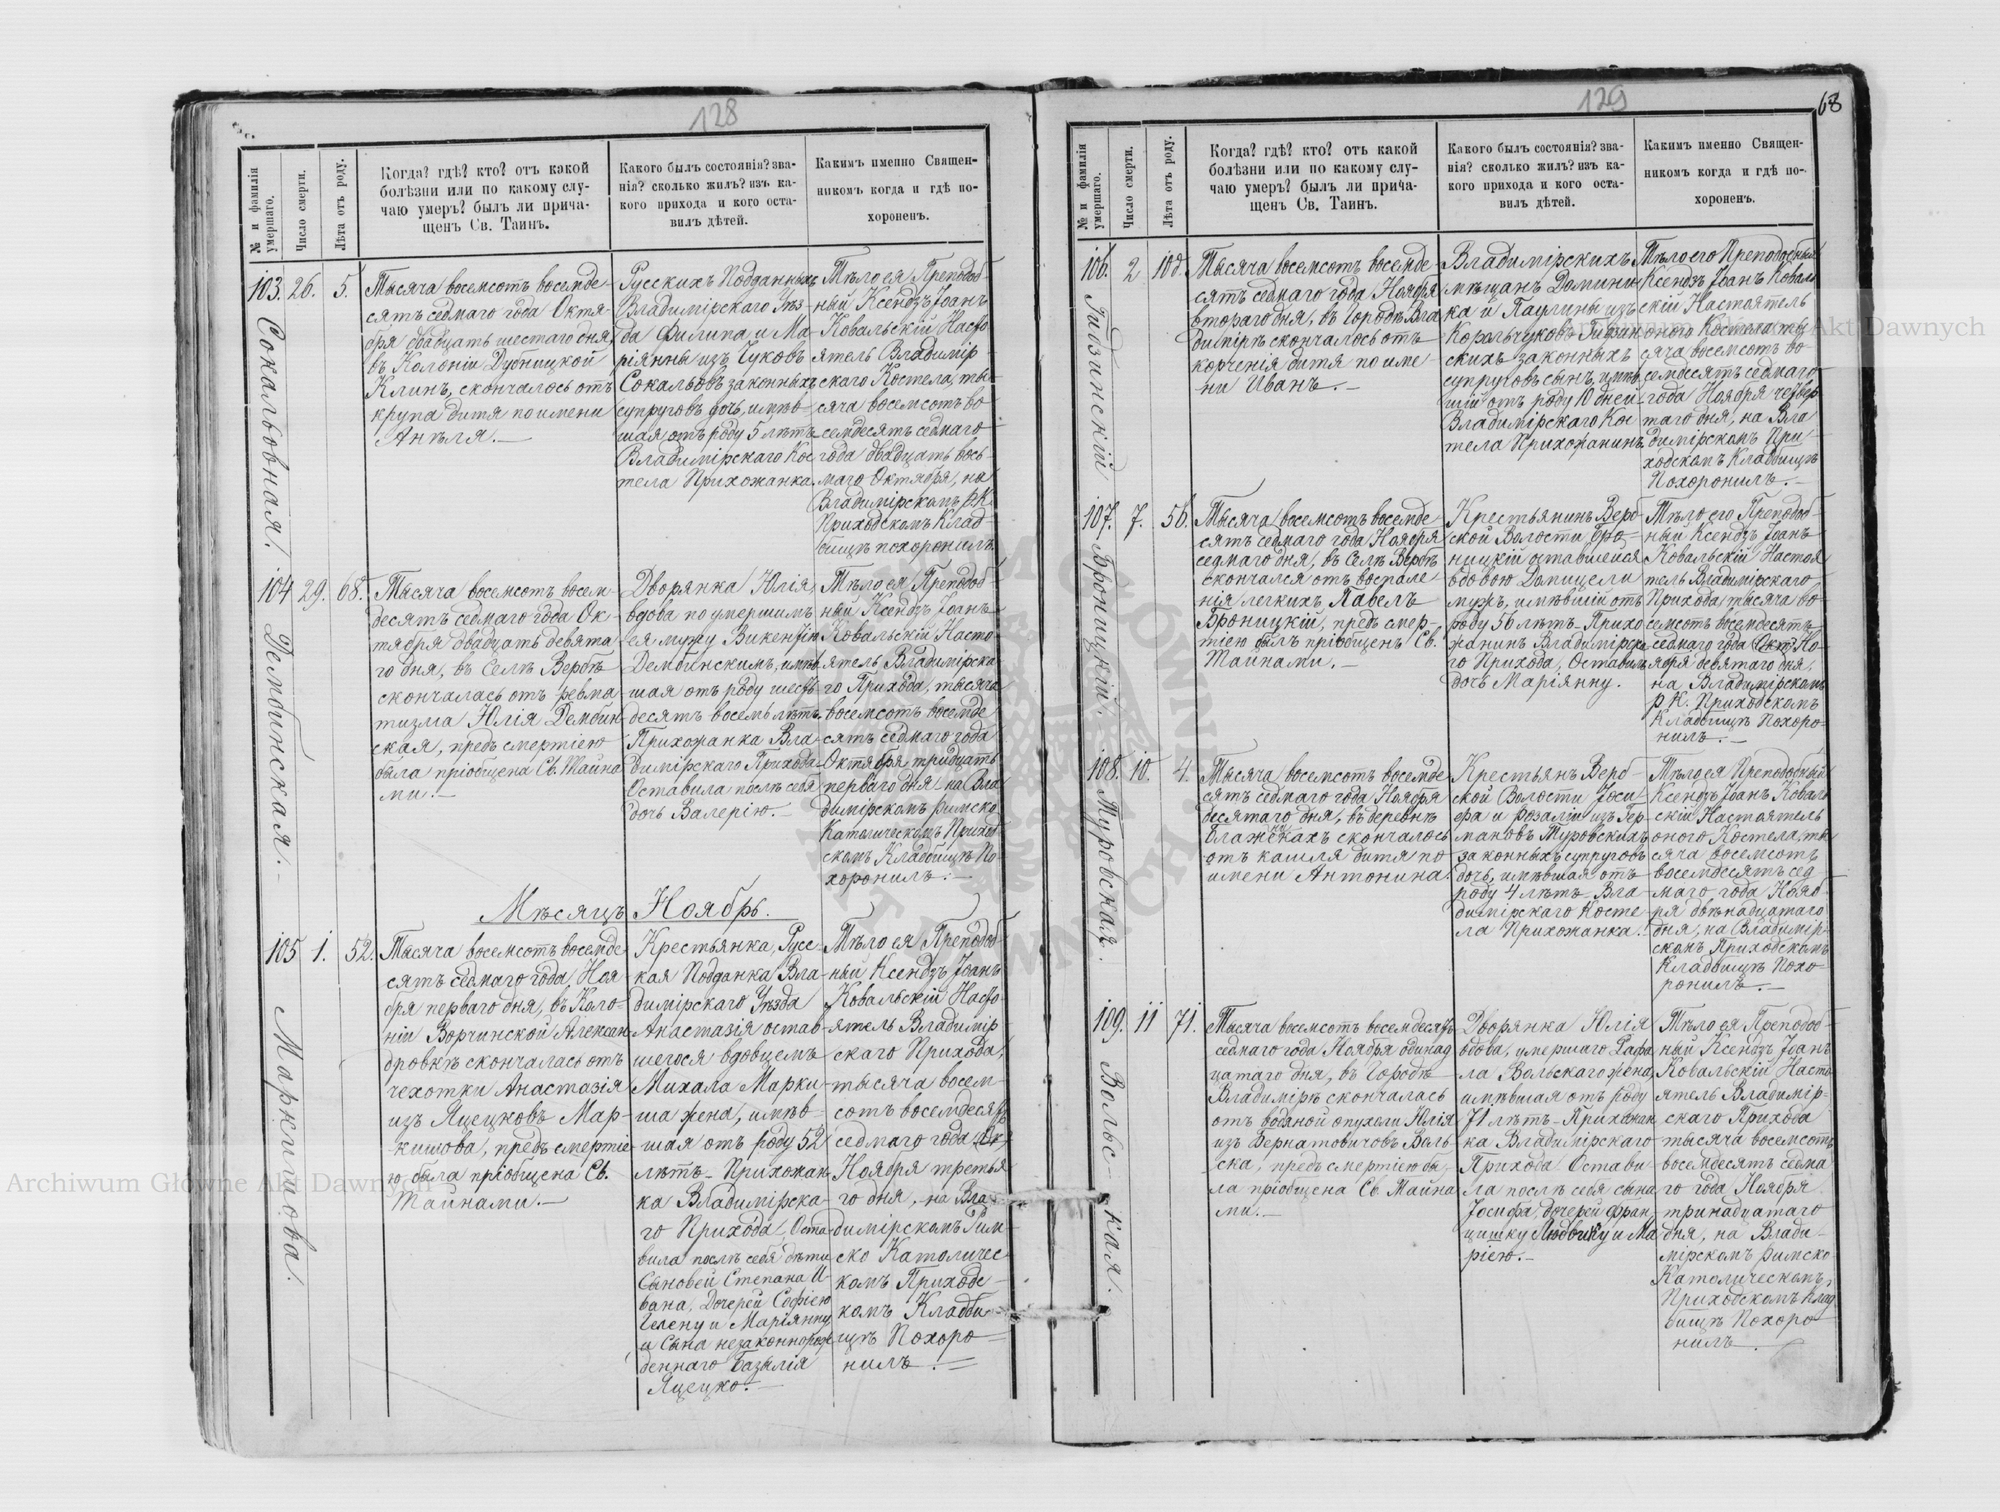 128
№ и фамилія умершаго.
Число смерти.
Лѣта отъ роду.
Когда? гдѣ? кто? отъ какой
болѣзни или по какому слу-
чаю умеръ? былъ ли прича-
щенъ Св. Таинъ.
Какого былъ состоянія? зва-
нія? сколько жилъ? изъ ка-
кого прихода и кого оста-
вилъ дѣтей.
Какимъ именно Священ-
никомъ когда и гдѣ по-
хороненъ.
103. 26. 5.
Сокальовная.
Тысяча восемсотъ восемде-
сятъ седмаго года Октя-
бря двадцать шестаго дня,
въ Колоніи Дубницкой
Клинъ, скончалось отъ
крупа дитя по имени
Анѣля.—
Русскихъ Подданныхъ
Владимірскаго Уѣз-
да Филипа и Ма-
ріянны изъ Чуковъ
Сокальовъ законныхъ
супруговъ дочь, имѣв-
шая отъ роду 5 лѣтъ
Владимірскаго Кос
тела Прихожанка.
Тѣло ея Преподоб-
ный Ксендзъ Іоанъ
Ковальскій Насто-
ятель Владимір-
скаго Костела, ты-
сяча восемсотъ во-
семдесятъ седмаго
года двадцать вось
маго Октября, на
Владимірскомъ Р.К.
Приходскомъ Клад-
бищѣ похоронилъ.
104 29. 68.
Дембинская.
Тысяча восемсотъ восем-
десятъ седмаго года Ок-
тября двадцать девята-
го дня, въ Селѣ Вербѣ
скончалась отъ ревма
тизма Юлія Дембин
ская, предъ смертію
была пріобщена Св. Тайна
ми.—
Дворянка Юлія,
вдова по умершимъ
ея мужу Викентіи
Дембинскимъ, имѣв
шая отъ роду шесть
десятъ восемь лѣтъ
Прихожанка Вла-
димірскаго Прихода
Оставила послѣ себя
дочь Валерію.—
Тѣло ея Преподоб-
ный Ксендзъ Іоанъ
Ковальскій Насто-
ятель Владимірска
го Прихода, тысяча
восемсотъ восемде
сятъ седмаго года
Октября тридцать
перваго дня на Вла
димірскомъ Римско
Католическомъ Приход
скомъ Кладбищѣ По-
хоронилъ.—
Мѣсяцъ Ноябрь.
105 1. 52.
Маркишова.
Тысяча восемсотъ восемде
сятъ седмаго года, Ноя
бря перваго дня, въ Коло-
ніи Ворчинской Алексан
дровкѣ скончалась отъ
чехотки Анастазія
изъ Яцецковъ Мар-
кишова, предъ смертіе
ю была пріобщена Св.
Тайнами.—
Крестьянка, Русс
кая Подданка Вла-
димірскаго Уѣзда
Анастазія остав
шегося вдовцемъ
Михала Марки-
ша жена, имѣв-
шая отъ роду 52
лѣтъ — Прихожан
ка Владимірска-
го Прихода, Оста-
вила послѣ себя дѣти
Сыновей Степана И-
вана, Дочерей Софію
Гелену и Маріянну
и Сына незаконнорож
деннаго Базылія
Яцецко.—
Тѣло ея Преподоб
ный Ксендзъ Іоанъ
Ковальскій Насто-
ятель Владимір-
скаго Прихода,
тысяча восем-
сотъ восемдесятъ
седмаго года
Ноября третья
го дня, на Вла-
димірскомъ Рим-
ско Католичес-
комъ Приходс-
комъ Кладби-
щѣ Похоро-
нилъ.
129
68
№ и фамилія умершаго.
Число смерти.
Лѣта отъ роду.
Когда? гдѣ? кто? отъ какой
болѣзни или по какому слу-
чаю умеръ? былъ ли прича-
щенъ Св. Таинъ.
Какого былъ состоянія? зва-
нія? сколько жилъ? изъ ка-
кого прихода и кого оста-
вилъ дѣтей.
Какимъ именно Священ-
никомъ когда и гдѣ по-
хороненъ.
106. 2 10д.
Тысяча восемсотъ восемде
сятъ седмаго года Ноября
втораго дня, въ Городѣ Вла
димірѣ скончалось отъ
корченія дитя по име-
ни Иванъ.—
Владимірскихъ
мѣщанъ Домини
ка и Паулины изъ
Корольчуковъ
скихъ законныхъ
супруговъ сынъ, имѣв
шій отъ роду 10 дней
Владимірскаго Кос
тела Прихожанинъ.
Тѣло его Преподобный
Ксендзъ Іоанъ Коваль
скій Настоятель
оного Костела ты
сяча восемсотъ во-
семдесятъ седмаго
года Ноября четвер
таго дня, на Вла
димірскомъ При-
ходскомъ Кладбищѣ
Похоронилъ.—
107. 7. 56.
Броницкій.
Тысяча восемсотъ восемде-
сятъ седмаго года Ноября
седмаго дня, въ Селѣ Вербѣ
скончался отъ воспале-
нія легкихъ, Павелъ
Броницкій, предъ смер-
тію былъ пріобщенъ Св.
Тайнами.—
Крестьянинъ Верб-
ской Волости Бро-
ницкій оставшейся
вдовою Домицели
мужъ, имѣвшій отъ
роду 56 лѣтъ — Прихо
жанинъ Владимірска
го Прихода, Оставилъ
дочь Маріянну.
Тѣло его Преподоб-
ный Ксендзъ Іоанъ
Ковальскій Настоя
тель Владимірскаго
Прихода, тысяча во-
семсотъ восемдесятъ
седмаго года Но-
ября девятаго дня,
на Владимірскомъ
Р. К. Приходскомъ
Кладбищѣ Похоро-
нилъ.—
108. 10. 4.
Туровская.
Тысяча восемсотъ восемде
сятъ седмаго года Ноября
десятаго дня, въ деревнѣ
скончалось
отъ кашля дитя по
имени Антонина.
Крестьянъ Верб-
ской Волости Іоси-
фа и Розаліи изъ Гер-
мановъ Туровскихъ
законныхъ супруговъ
дочь, имѣвшая отъ
роду 4 лѣтъ Вла-
димірскаго Косте
ла Прихожанка.
Тѣло ея Преподобный
Ксендзъ Іоанъ Коваль
скій Настоятель
оного Костела, ты
сяча восемсотъ
восемдесятъ сед
маго года Нояб-
ря двѣнадцатаго
дня, на Владимір-
скомъ Приходскомъ
Кладбищѣ Похо-
ронилъ.—
109. 11 71.
Вольс-кая.
Тысяча восемсотъ восемдесятъ
седмаго года Ноября одинад
цатаго дня, въ Городѣ
Владимірѣ скончалась
отъ водяной опухоли Юлія
изъ Бернатовичовъ Воль-
ска, предъ смертію бы-
ла пріобщена Св. Тайна
ми.—
Дворянка Юлія
вдова, умершаго Рафа
ла Вольскаго жена
имѣвшая отъ роду
71 лѣтъ — Прихожан
ка Владимірскаго
Прихода Остави-
ла послѣ себя сына
Іосифа, дочерей Фран
цишку Людвику и Ма
рію.—
Тѣло ея Преподоб-
ный Ксендзъ Іоанъ
Ковальскій Насто
ятель Владимір-
скаго Прихода
тысяча восемсотъ
восемдесятъ седма
го года Ноября
тринадцатаго
дня, на Влади-
мірскомъ Римско-
Католическомъ
Приходскомъ Клад
бищѣ Похоро-
нилъ.
Archiwum Główne Akt Dawnych
Akt Dawnych